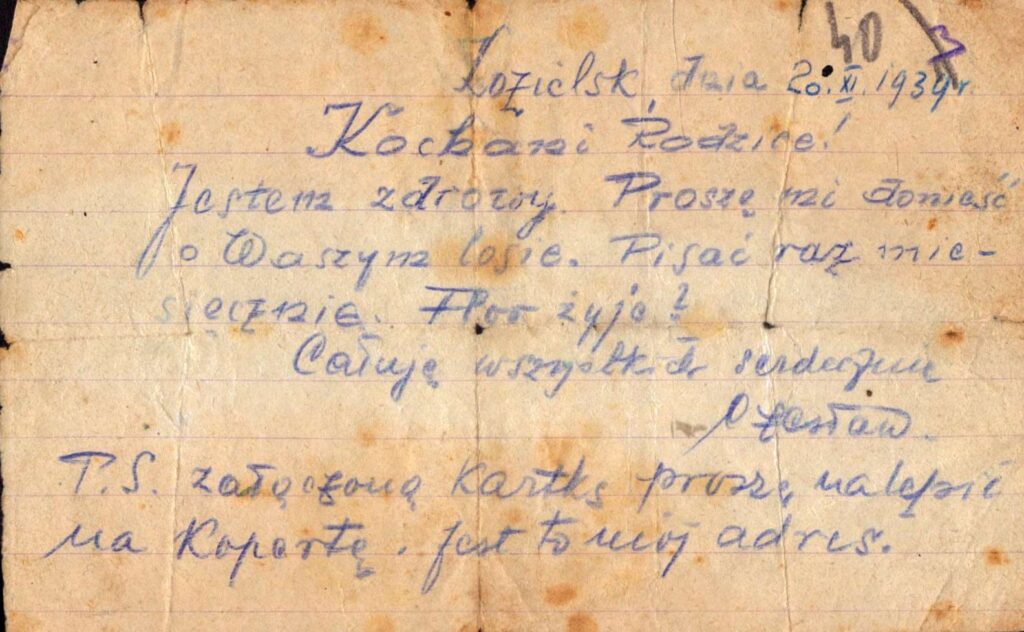 40
Kozielsk, dnia 20.XI.1939r.
Kochani Rodzice!
Jestem zdrowy. Proszę mi donieść
o Waszym losie. Pisać raz mie-
sięcznie. Flor żyje?
Całuję wszystkich serdecznie
Czesław.
P.S. załączoną kartkę proszę nalepić
na kopertę. Jest to mój adres.